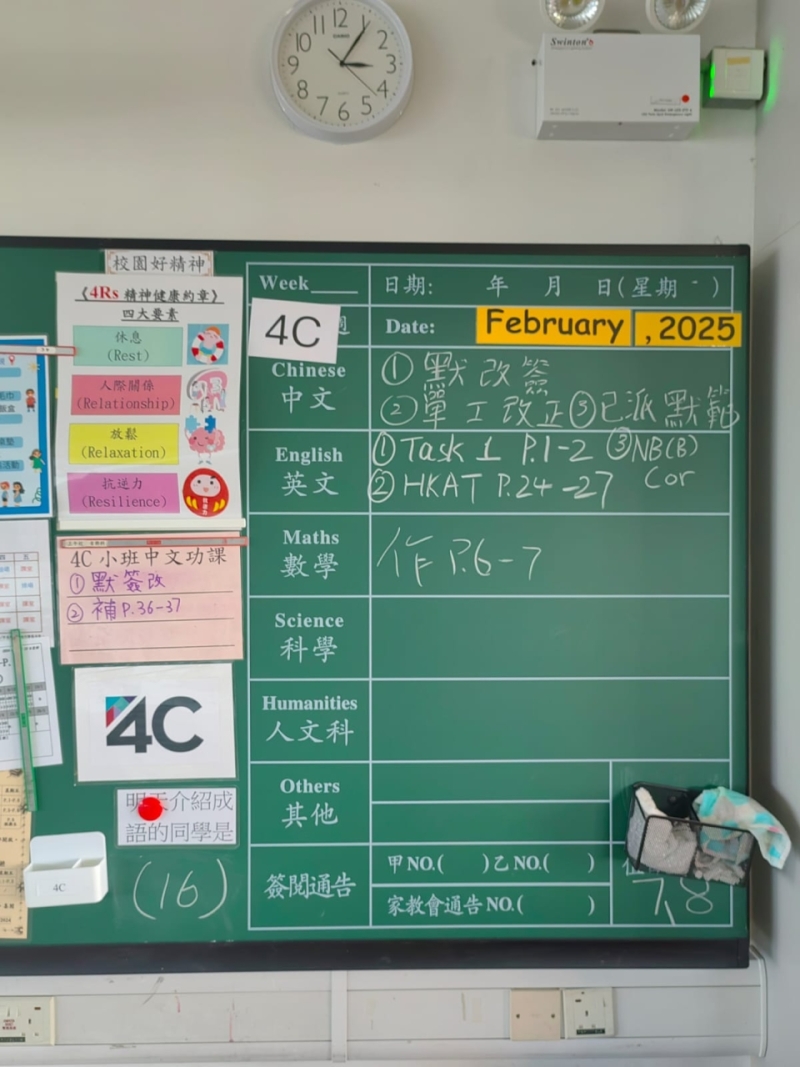 12
1
2
3
4
5
6
7
8
9
10
11
CASIO
Swinton
校園好精神
《4Rs 精神健康約章》
四大要素
休息
(Rest)
人際關係
(Relationship)
放鬆
(Relaxation)
抗逆力
(Resilience)
4C 小班中文功課
① 默簽改
② 補 P.36-37
4C
明天介紹成
語的同學是
4C
(16)
Week
日期: 年 月 日(星期 )
4C
週
Date: February , 2025
Chinese
中文
① 默改簽
② 單工改正 ③ 已派默範
English
英文
① Task 1 P.1-2 ③ NB(B)
② HKAT P.24-27 Cor
Maths
數學
作 P.6-7
Science
科學
Humanities
人文科
Others
其他
簽閱通告
甲NO.( )乙NO.( )
家教會通告NO.( )
7、8